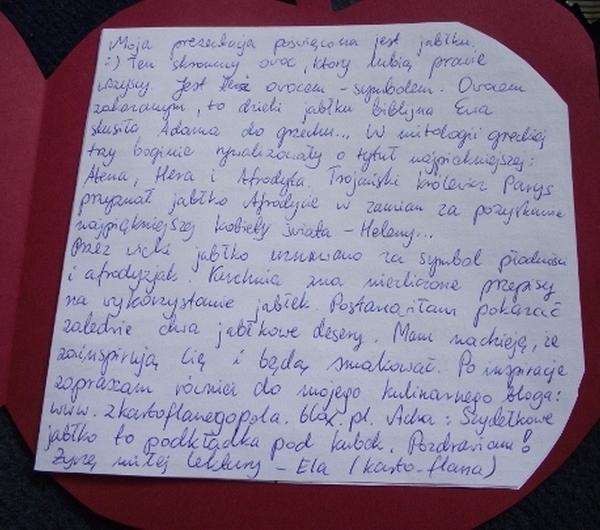 Moja prezentacja poświęcona jest jabłku.
:) Ten skromny owoc, który lubią prawie
wszyscy. Jest też owocem - symbolem. Owocem
zakazanym, to dzięki jabłku biblijna Ewa
skusiła Adama do grzechu... W mitologii greckiej
trzy boginie rywalizowały o tytuł najpiękniejszej:
Atena, Hera i Afrodyta. Trojański królewicz Parys
przyznał jabłko Afrodycie w zamian za pozyskanie
najpiękniejszej kobiety świata - Heleny...
Przez wieki jabłko uznawano za symbol płodności
i afrodyzjak. Kuchnia zna niezliczone przepisy
na wykorzystanie jabłek. Postanowiłam pokazać
zaledwie dwa jabłkowe desery. Mam nadzieję, że
zainspirują Cię i będą smakować. Po inspiracje
zapraszam również do mojego kulinarnego bloga:
www.zkartoflanegopola.blox.pl. Acha: Szydełkowe
jabłko to podkładka pod kubek. Pozdrawiam!
Życzę miłej lektury - Ela (karto-flana)